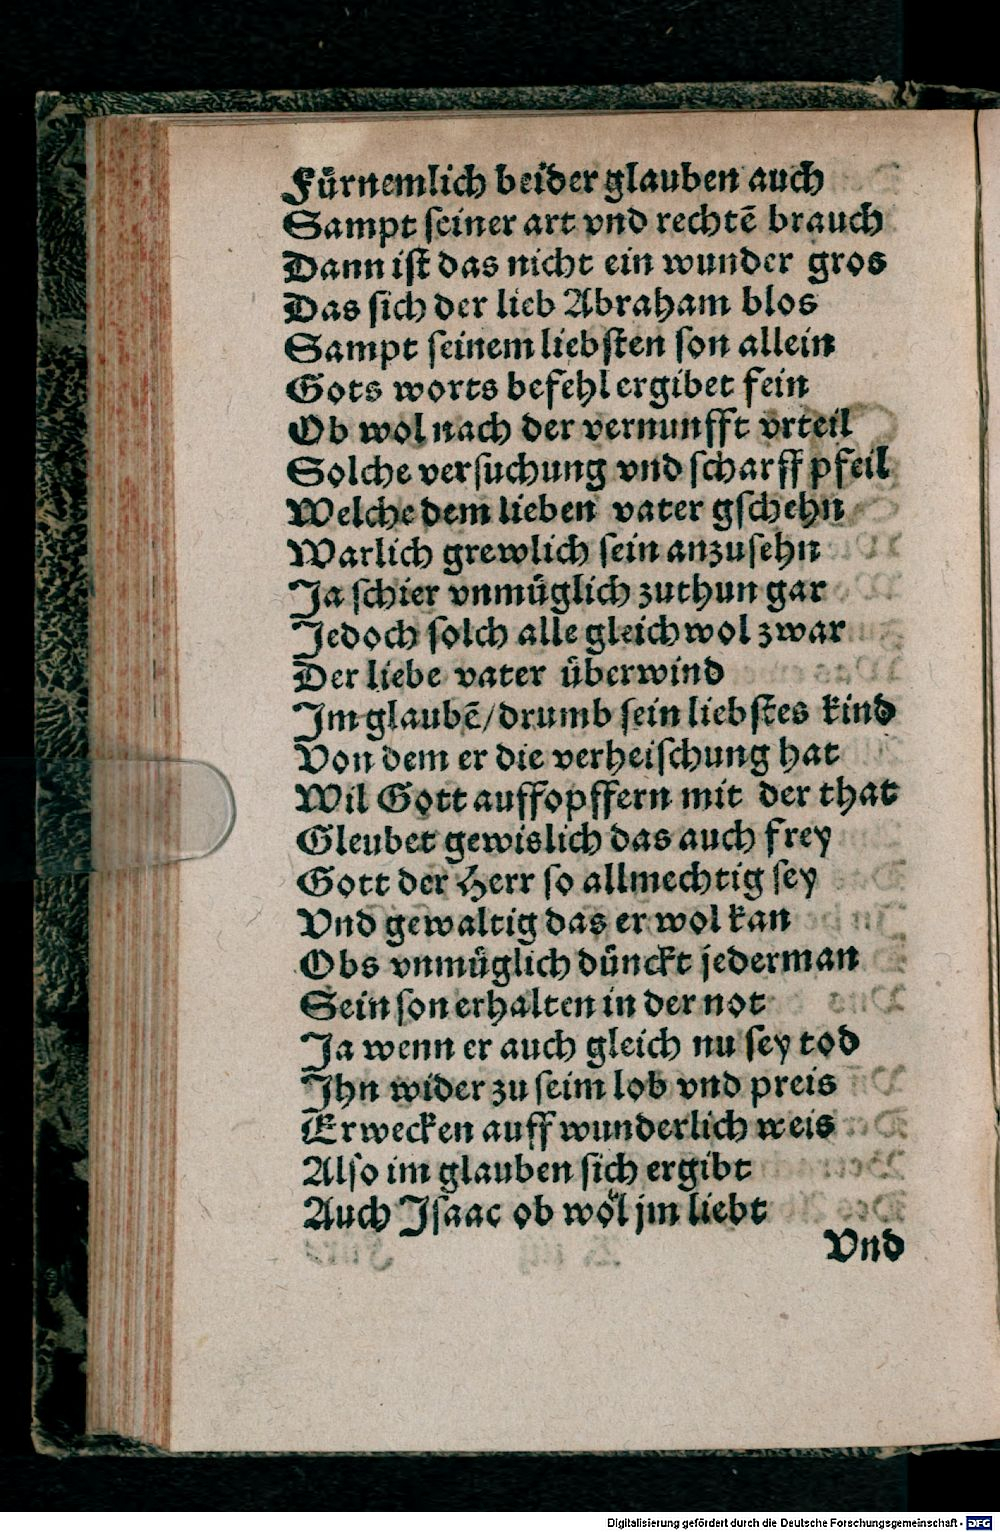 Fürnemlich beider glauben auch
Sampt seiner art vnd rechtē brauch
Dann ist das nicht ein wunder gros
Das sich der lieb Abraham blos
Sampt seinem liebsten son allein
Gots worts befehl ergibet fein
Ob wol nach der vernunfft vrteil
Solche versuchung vnd scharff pfeil
Welche dem lieben vater gschehn
Warlich grewlich sein anzusehn
Ja schier vnmüglich zuthun gar
Jedoch solch alle gleichwol zwar
Der liebe vater überwind
Im glaubē/drumb sein liebstes kind
Von dem er die verheischung hat
Wil Gott auffopffern mit der that
Gleubet gewislich das auch frey
Gott der Herr so allmechtig sey
Vnd gewaltig das er wol kan
Obs vnmüglich dünckt jederman
Sein son erhalten in der not
Ja wenn er auch gleich nu sey tod
Ihn wider zu seim lob vnd preis
Erwecken auff wunderlich weis
Also im glauben sich ergibt
Auch Isaac ob woͤl jm liebt
Vnd
Digitalisierung gefördert durch die Deutsche Forschungsgemeinschaft - DFG